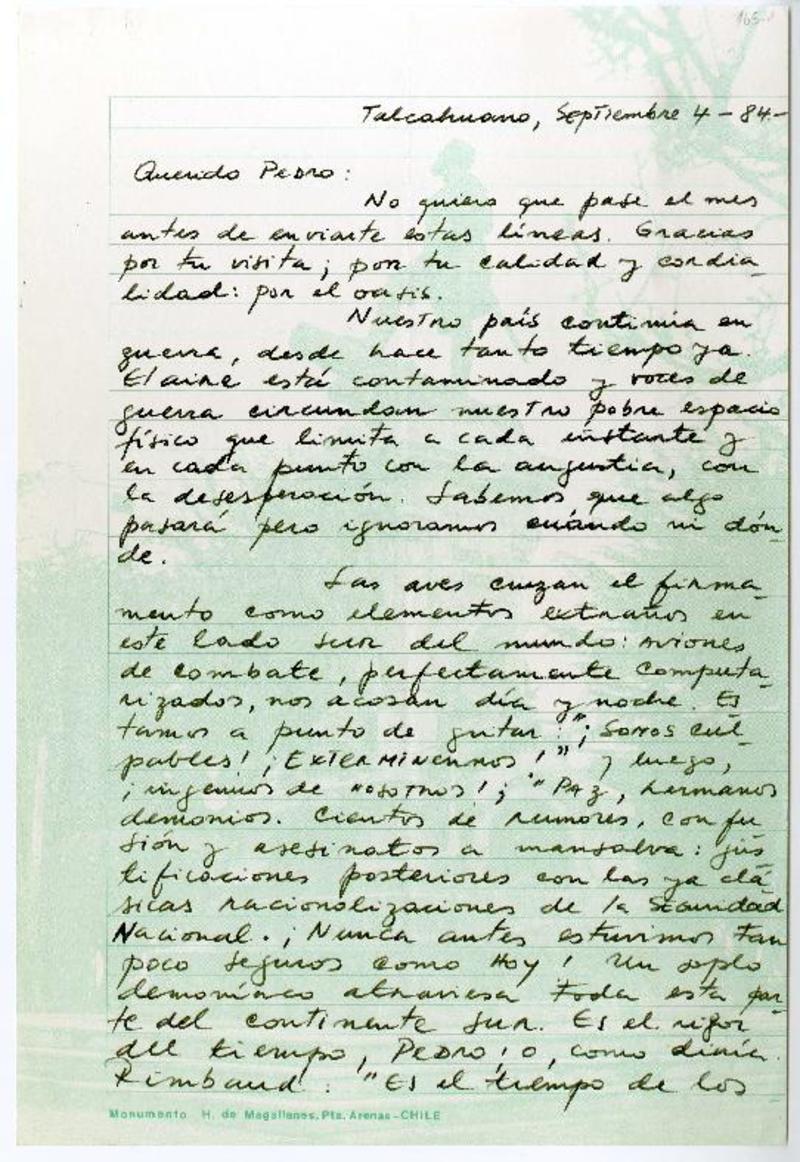 165
Talcahuano, Septiembre 4 - 84.-
Querido Pedro:
No quiero que pase el mes
antes de enviarte estas líneas. Gracias
por tu visita; por tu calidad y cordia_
lidad: por el oasis.
Nuestro país continúa en
guerra, desde hace tanto tiempo ya.
El aire está contaminado y voces de
guerra circundan nuestro pobre espacio
físico que limita a cada instante y
en cada punto con la angustia, con
la desesperación. Sabemos que algo
pasará pero ignoramos cuándo ni dón_
de.
Las aves cruzan el firma_
mento como elementos extraños en
este lado sur del mundo: aviones
de combate, perfectamente computa_
rizados, nos acosan día y noche. Es_
tamos a punto de gritar: "¡Somos cul_
pables! ¡EXTERMINENNOS!" y luego,
¡ingenuos de nosotros!; "Paz, hermanos
demonios. Cientos de rumores, confu_
sión y asesinatos a mansalva: jus_
tificaciones posteriores con las ya clá_
sicas racionalizaciones de la Seguridad
Nacional. ¡Nunca antes estuvimos tan
poco seguros como Hoy! Un soplo
demoníaco atraviesa toda esta par_
te del continente sur. Es el rigor
del tiempo, Pedro; o, como diría
Rimbaud: "Es el tiempo de los
Monumento H. de Magallanes. Pta. Arenas-CHILE